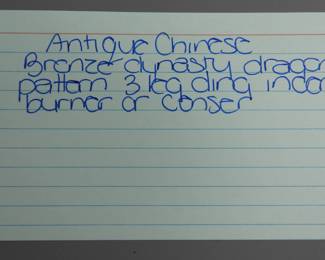 Antique Chinese
Bronze dynasty dragon
pattern 3 leg ding incen
burner or Censer